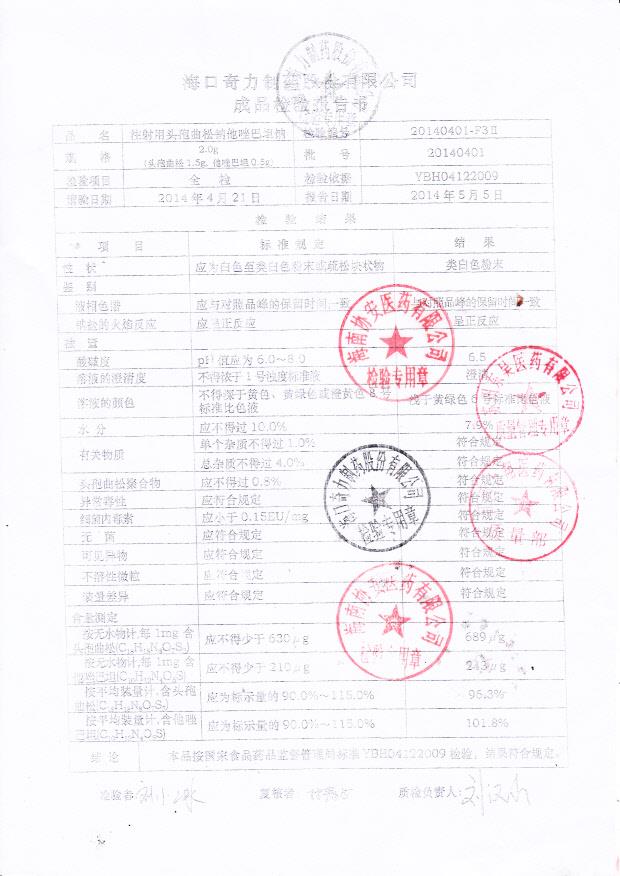 海口奇力制药股份有限公司
成品检验报告书
品 名 注射用头孢曲松钠他唑巴坦钠 检验编号 20140401-F3Ⅱ
规 格 2.0g (头孢曲松1.5g, 他唑巴坦0.5g) 批 号 20140401
检验项目 全 检 检验依据 YBH04122009
请验日期 2014年4月21日 报告日期 2014年5月5日
检 验 结 果
项 目 标 准 规 定 结 果
性 状 应为白色至类白色粉末或疏松块状物 类白色粉末
鉴 别
液相色谱 应与对照品峰的保留时间一致 与对照品峰的保留时间一致
钠盐的火焰反应 应呈正反应 呈正反应
检 查
酸碱度 pH值应为6.0~8.0 6.5
溶液的澄清度 不得浓于1号浊度标准液 澄清
溶液的颜色 不得深于黄色、黄绿色或橙黄色8号标准比色液 浅于黄绿色6号标准比色液
水 分 应不得过10.0% 7.9%
有关物质 单个杂质不得过1.0% 符合规定
总杂质不得过4.0% 符合规定
头孢曲松聚合物 应不得过0.8% 符合规定
异常毒性 应符合规定 符合规定
细菌内毒素 应小于0.15EU/mg 符合规定
无 菌 应符合规定 符合规定
可见异物 应符合规定 符合规定
不溶性微粒 应符合规定 符合规定
装量差异 应符合规定 符合规定
含量测定
按无水物计,每1mg含头孢曲松 应不得少于630μg 689μg
按无水物计,每1mg含他唑巴坦 应不得少于210μg 243μg
按平均装量计,含头孢曲松 应为标示量的90.0%~115.0% 96.3%
按平均装量计,含他唑巴坦 应为标示量的90.0%~115.0% 101.8%
结 论 本品按国家食品药品监督管理局标准YBH04122009检验，结果符合规定。
检验者: 复核者: 质检负责人:
海南协安医药有限公司
检验专用章
医药有限公司
质量管理专用章
海口奇力制药股份有限公司
检验专用章
质量部
海南协安医药有限公司
检验专用章